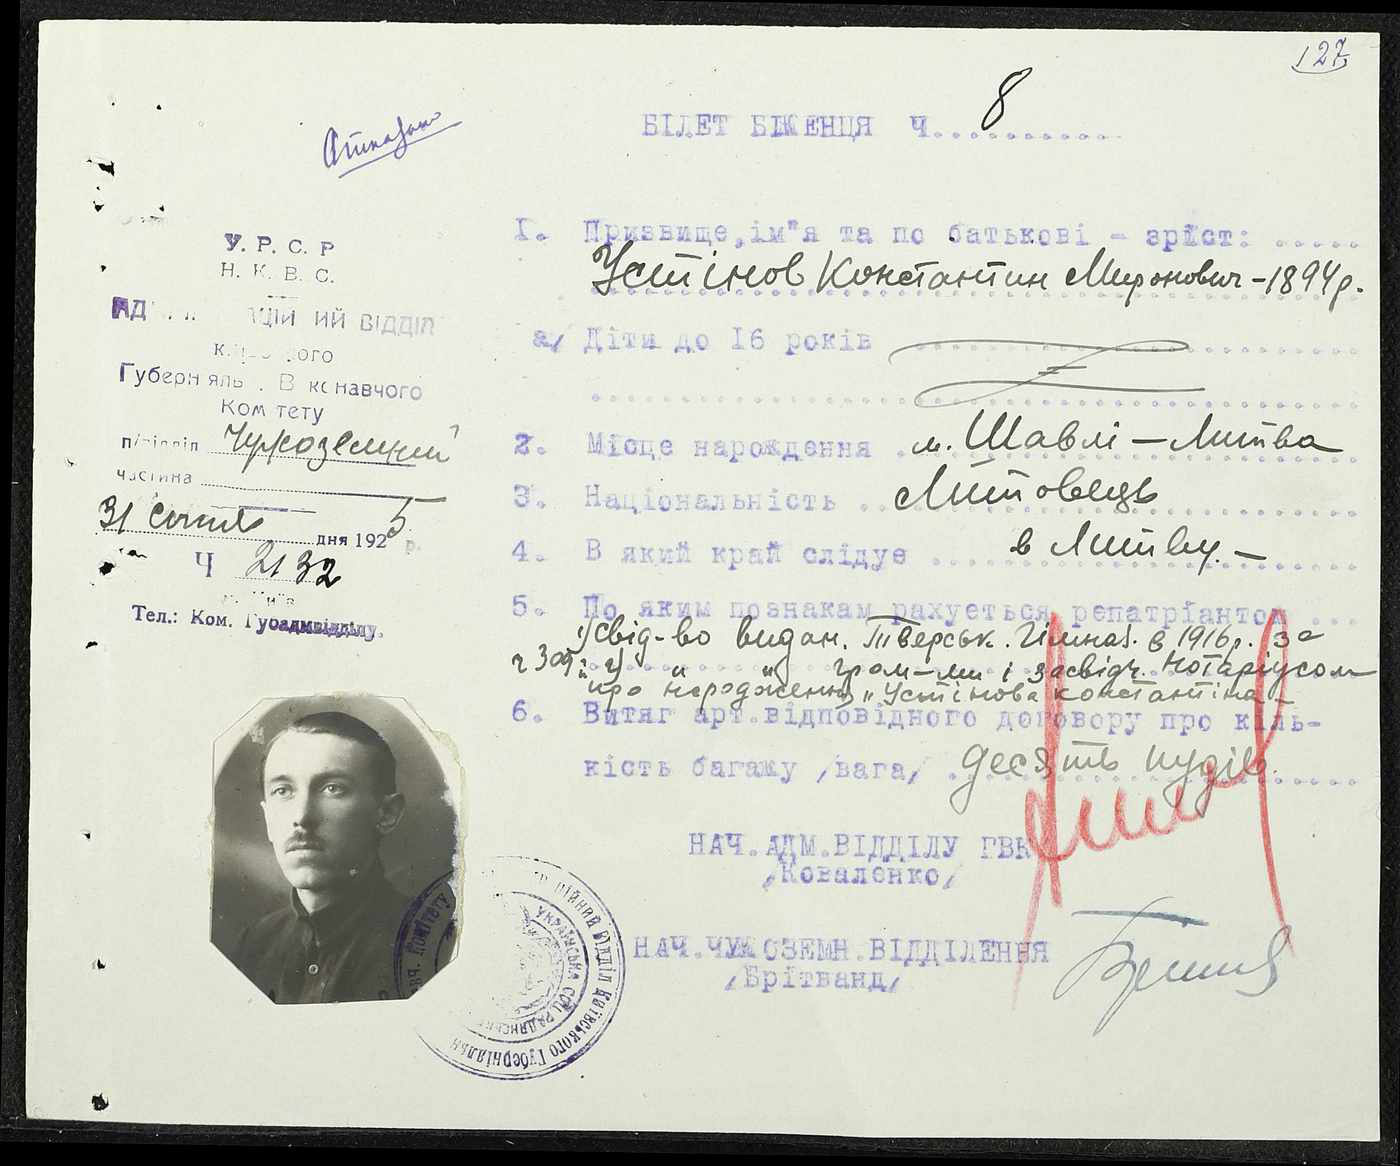 127
БІЛЕТ БІЖЕНЦЯ Ч. 8
У. Р. С. Р
Н. К. В. С.
ВІДДІЛ
Губерніяль В конавчого
Ком тету
підвідділ Чужоземний
частина
31 січня дня 1925 р.
Ч 2132
м. Київ
Тел.: Ком. Губадмвідділу.
1. Призвище, ім"я та по батькові - зріст: .....
Устінов Константин Миронович - 1894 р.
а/ Діти до 16 років
2. Місце народження м. Шавлі - Литва
3. Національність Литовець
4. В який край слідує в Литву. -
5. По яким познакам рахується репатріантом ...
1) Свід-во видан. Тверськ. Гімназ. в 1916 р. за
ч 309; 2) " " гром-ми і засвідч. Нотаріусом
про народження "Устінова Константіна" -
6. Витяг арт. відповідного договору про кіль-
кість багажу /вага/ десять пудів.
НАЧ. АДМ. ВІДДІЛУ ГВК
/Коваленко/
НАЧ. ЧУЖОЗЕМН. ВІДДІЛЕННЯ
/Брітванд/
УКРАЇНСЬКА СОЦ. РАДЯНСЬК
ВІДДІЛ Київського Губерніяльн
вич. Комітету